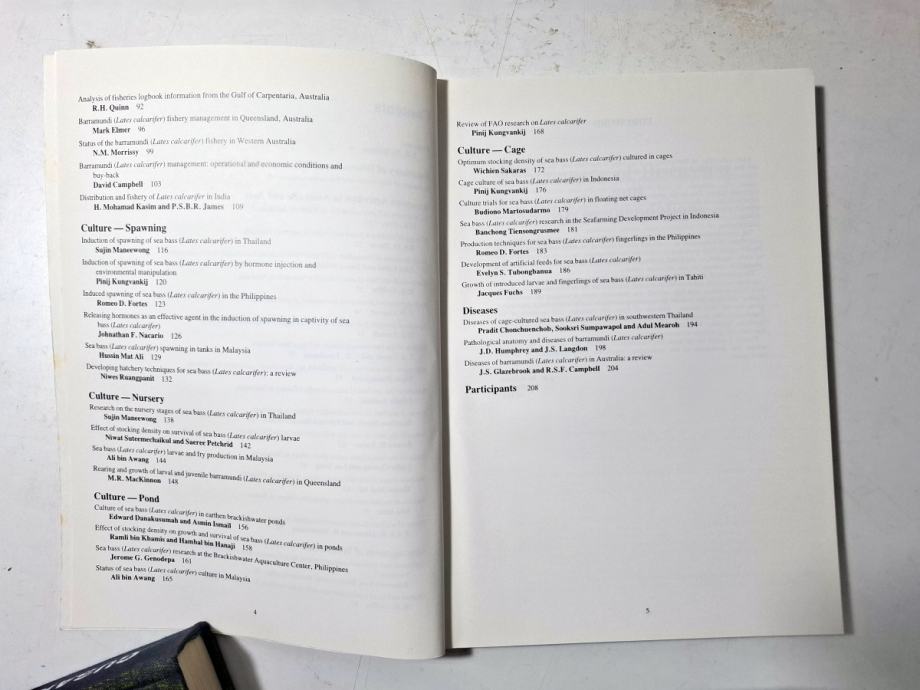 Analysis of fisheries logbook information from the Gulf of Carpentaria, Australia
R.H. Quinn 92
Barramundi (Lates calcarifer) fishery management in Queensland, Australia
Mark Elmer 96
Status of the barramundi (Lates calcarifer) fishery in Western Australia
N.M. Morrissy 99
Barramundi (Lates calcarifer) management: operational and economic conditions and
buy-back
David Campbell 103
Distribution and fishery of Lates calcarifer in India
H. Mohamad Kasim and P.S.B.R. James 109
Culture — Spawning
Induction of spawning of sea bass (Lates calcarifer) in Thailand
Sujin Maneewong 116
Induction of spawning of sea bass (Lates calcarifer) by hormone injection and
environmental manipulation
Pinij Kungvankij 120
Induced spawning of sea bass (Lates calcarifer) in the Philippines
Romeo D. Fortes 123
Releasing hormones as an effective agent in the induction of spawning in captivity of sea
bass (Lates calcarifer)
Johnathan F. Nacario 126
Sea bass (Lates calcarifer) spawning in tanks in Malaysia
Hussin Mat Ali 129
Developing hatchery techniques for sea bass (Lates calcarifer): a review
Niwes Ruangpanit 132
Culture — Nursery
Research on the nursery stages of sea bass (Lates calcarifer) in Thailand
Sujin Maneewong 138
Effect of stocking density on survival of sea bass (Lates calcarifer) larvae
Niwat Sutermechaikul and Saeree Petchrid 142
Sea bass (Lates calcarifer) larvae and fry production in Malaysia
Ali bin Awang 144
Rearing and growth of larval and juvenile barramundi (Lates calcarifer) in Queensland
M.R. MacKinnon 148
Culture — Pond
Culture of sea bass (Lates calcarifer) in earthen brackishwater ponds
Edward Danakusumah and Asmin Ismail 156
Effect of stocking density on growth and survival of sea bass (Lates calcarifer) in ponds
Ramli bin Khamis and Hambal bin Hanaji 158
Sea bass (Lates calcarifer) research at the Brackishwater Aquaculture Center, Philippines
Jerome G. Genodepa 161
Status of sea bass (Lates calcarifer) culture in Malaysia
Ali bin Awang 165
4
Review of FAO research on Lates calcarifer
Pinij Kungvankij 168
Culture — Cage
Optimum stocking density of sea bass (Lates calcarifer) cultured in cages
Wichien Sakaras 172
Cage culture of sea bass (Lates calcarifer) in Indonesia
Pinij Kungvankij 176
Culture trials for sea bass (Lates calcarifer) in floating net cages
Budiono Martosudarmo 179
Sea bass (Lates calcarifer) research in the Seafarming Development Project in Indonesia
Banchong Tiensongrusmee 181
Production techniques for sea bass (Lates calcarifer) fingerlings in the Philippines
Romeo D. Fortes 183
Development of artificial feeds for sea bass (Lates calcarifer)
Evelyn S. Tubongbanua 186
Growth of introduced larvae and fingerlings of sea bass (Lates calcarifer) in Tahiti
Jacques Fuchs 189
Diseases
Diseases of cage-cultured sea bass (Lates calcarifer) in southwestern Thailand
Pradit Chonchuenchob, Sooksri Sumpawapol and Adul Mearoh 194
Pathological anatomy and diseases of barramundi (Lates calcarifer)
J.D. Humphrey and J.S. Langdon 198
Diseases of barramundi (Lates calcarifer) in Australia: a review
J.S. Glazebrook and R.S.F. Campbell 204
Participants 208
5